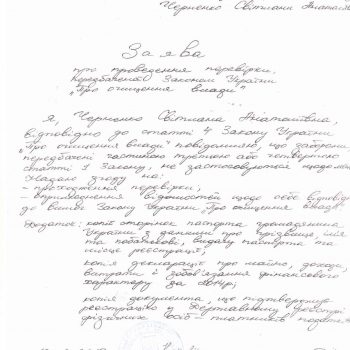 Черненко Світлани
Заява
про проведення перевірки,
передбаченої Законом України
"Про очищення влади"
Я, Черненко Світлана
відповідно до статті 4 Закону України
"Про очищення влади" повідомляю, що заборони,
передбачені частиною третьою або четвертою
статті 1 Закону, не застосовуються щодо мене
Надаю згоду на:
- проходження перевірки;
- оприлюднення відомостей щодо себе відповід
до вимог Закону України "Про очищення влади".
Додаток: копії сторінок паспорта громадянина
України з даними про прізвище, ім'я
та побатькові, видачу паспорта та
місце реєстрації;
копія декларації про майно, доходи,
витрати і зобов'язання фінансового
характеру за
копія документа, що підтверджує
реєстрацію у Державному реєстрі
фізичних осіб - платників податк